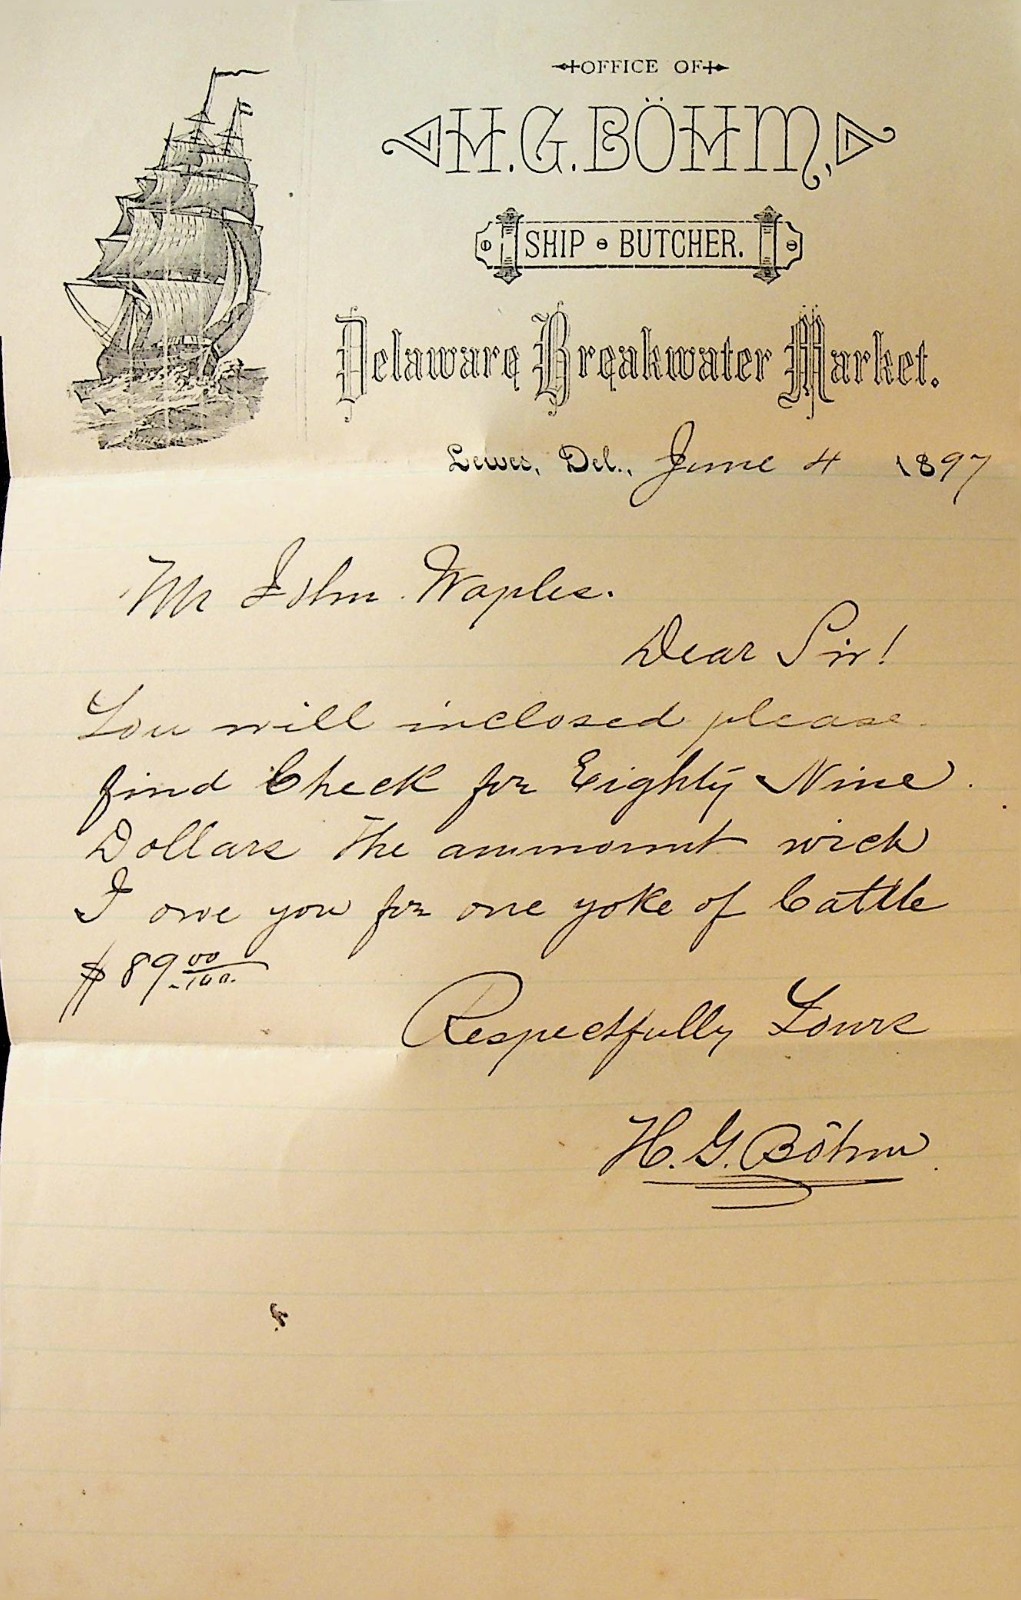 OFFICE OF
H. G. BÖHM,
SHIP BUTCHER.
Delaware Breakwater Market.
Lewes, Del., June 4 1897
Mr John Waples.
Dear Sir!
You will inclosed please
find Check for Eighty Nine
Dollars the ammount wich
I owe you for one yoke of Cattle
$ 89 00/100.
Respectfully Yours
H. G. Böhm